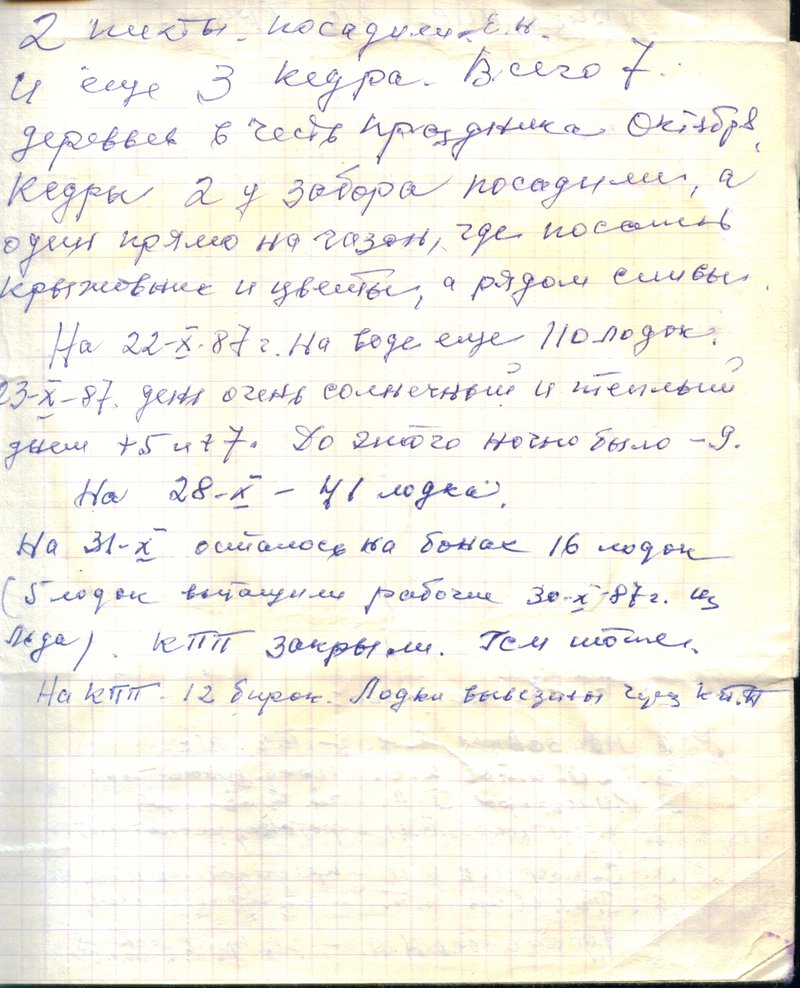 2 пихты посадили Е.Н.
и еще 3 кедра. Всего 7
деревьев в честь праздника Октября.
Кедры 2 у забора посадили, а
один прямо на газон, где посажен
крыжовник и цветы, а рядом сливы.
На 22-X-87 г. на воде еще 110 лодок.
23-X-87. день очень солнечный и теплый
днем +5 и +7. До этого ночью было -9.
На 28-X - 41 лодка.
На 31-X осталось на бонах 16 лодок
(5 лодок вытащили рабочие 30-X-87 г. из
льда). КПП закрыли. Тсм тоже.
На КПП. 12 бирок. Лодки вывезины через КПП